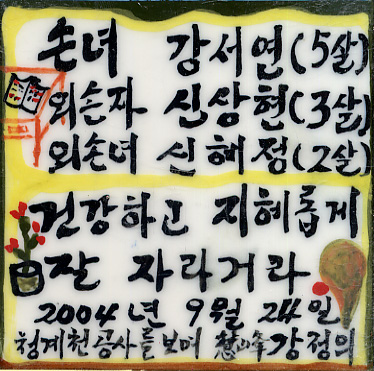 손녀 강서연(5살)
외손자 신상현(3살)
외손녀 신혜정(2살)
건강하고 지혜롭게
잘 자라거라
2004년 9월 24일
청계천공사를보며 慧峰 강정의